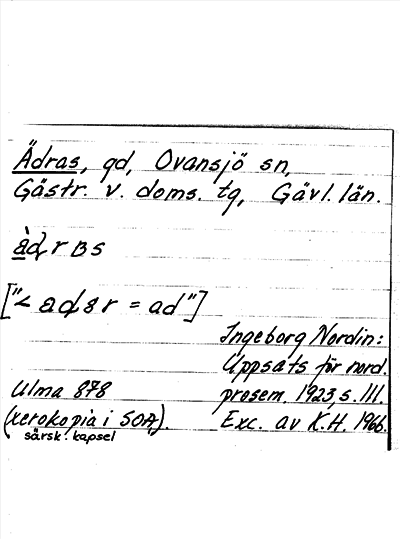 Ädras, gd, Ovansjö sn,
Gästr. v. doms. tg, Gävl. län.
àdrBs
["< adər = ad"]
Ingeborg Nordin:
Uppsats för nord.
Ulma 878 prosem. 1923, s. 111.
(xerokopia i SOA). Exc. av K.H. 1966.
särsk. kapsel